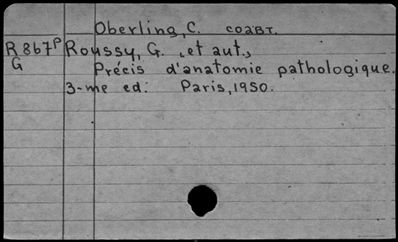 Oberling, C. соавт.
R867P Roussy, G. et aut.,
G Précis d'anatomie pathologique.
3-me ed. Paris, 1950.